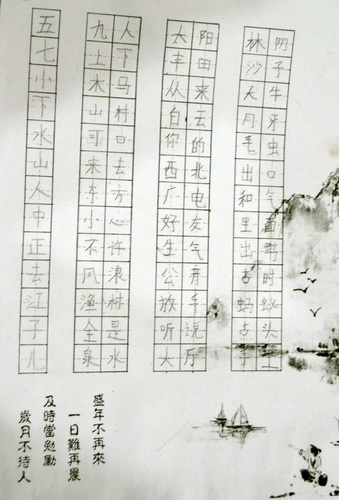 阴子牛牙虫口气面时蚁头土
林沙大月毛出和里出古蚂点手
阳田来云的北电友气开手说厅
太丰从自你西广好生公放听大
人下马村口去方心许浪林是水
九土木山可来东小不风渔全泉
五七小下水山人中正去江子儿
盛年不再來
一日難再晨
及時當勉勵
歲月不待人